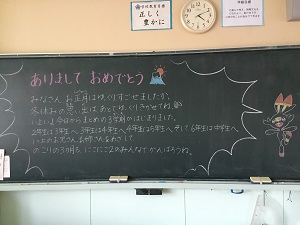 学校教育目標
正しく
豊かに
ありまして おめでとう
みなさん、お正月はゆっくりすごせましたか。
冬休みの思い出はあとでゆっくりきかせてね。
いよいよ今日からまとめの3学期がはじまりました。
2年生は3年生へ、3年生は4年生へ、4年生は5年生へ、そして6年生は中学生へ
いっこ上のお兄さん、お姉さんをめざして、
のこりの3か月も、にこにこ みんなでがんばろうね。